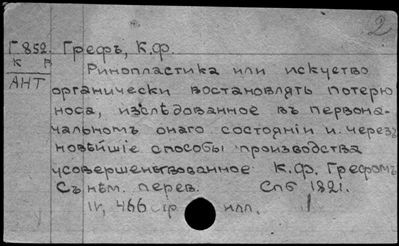 2
Г852. Грефъ, К.Ф.
К Р
АНТ
Ринопластика или искуство
органически востановлять потерю
носа, изслѣдованное въ первона-
чальномъ онаго состоянiи и через
новѣйшiе способы производства
усовершенствованное К.Ф. Грефомъ
Съ нѣм. перев. Спб 1821.
IV, 466 стр илл. 1